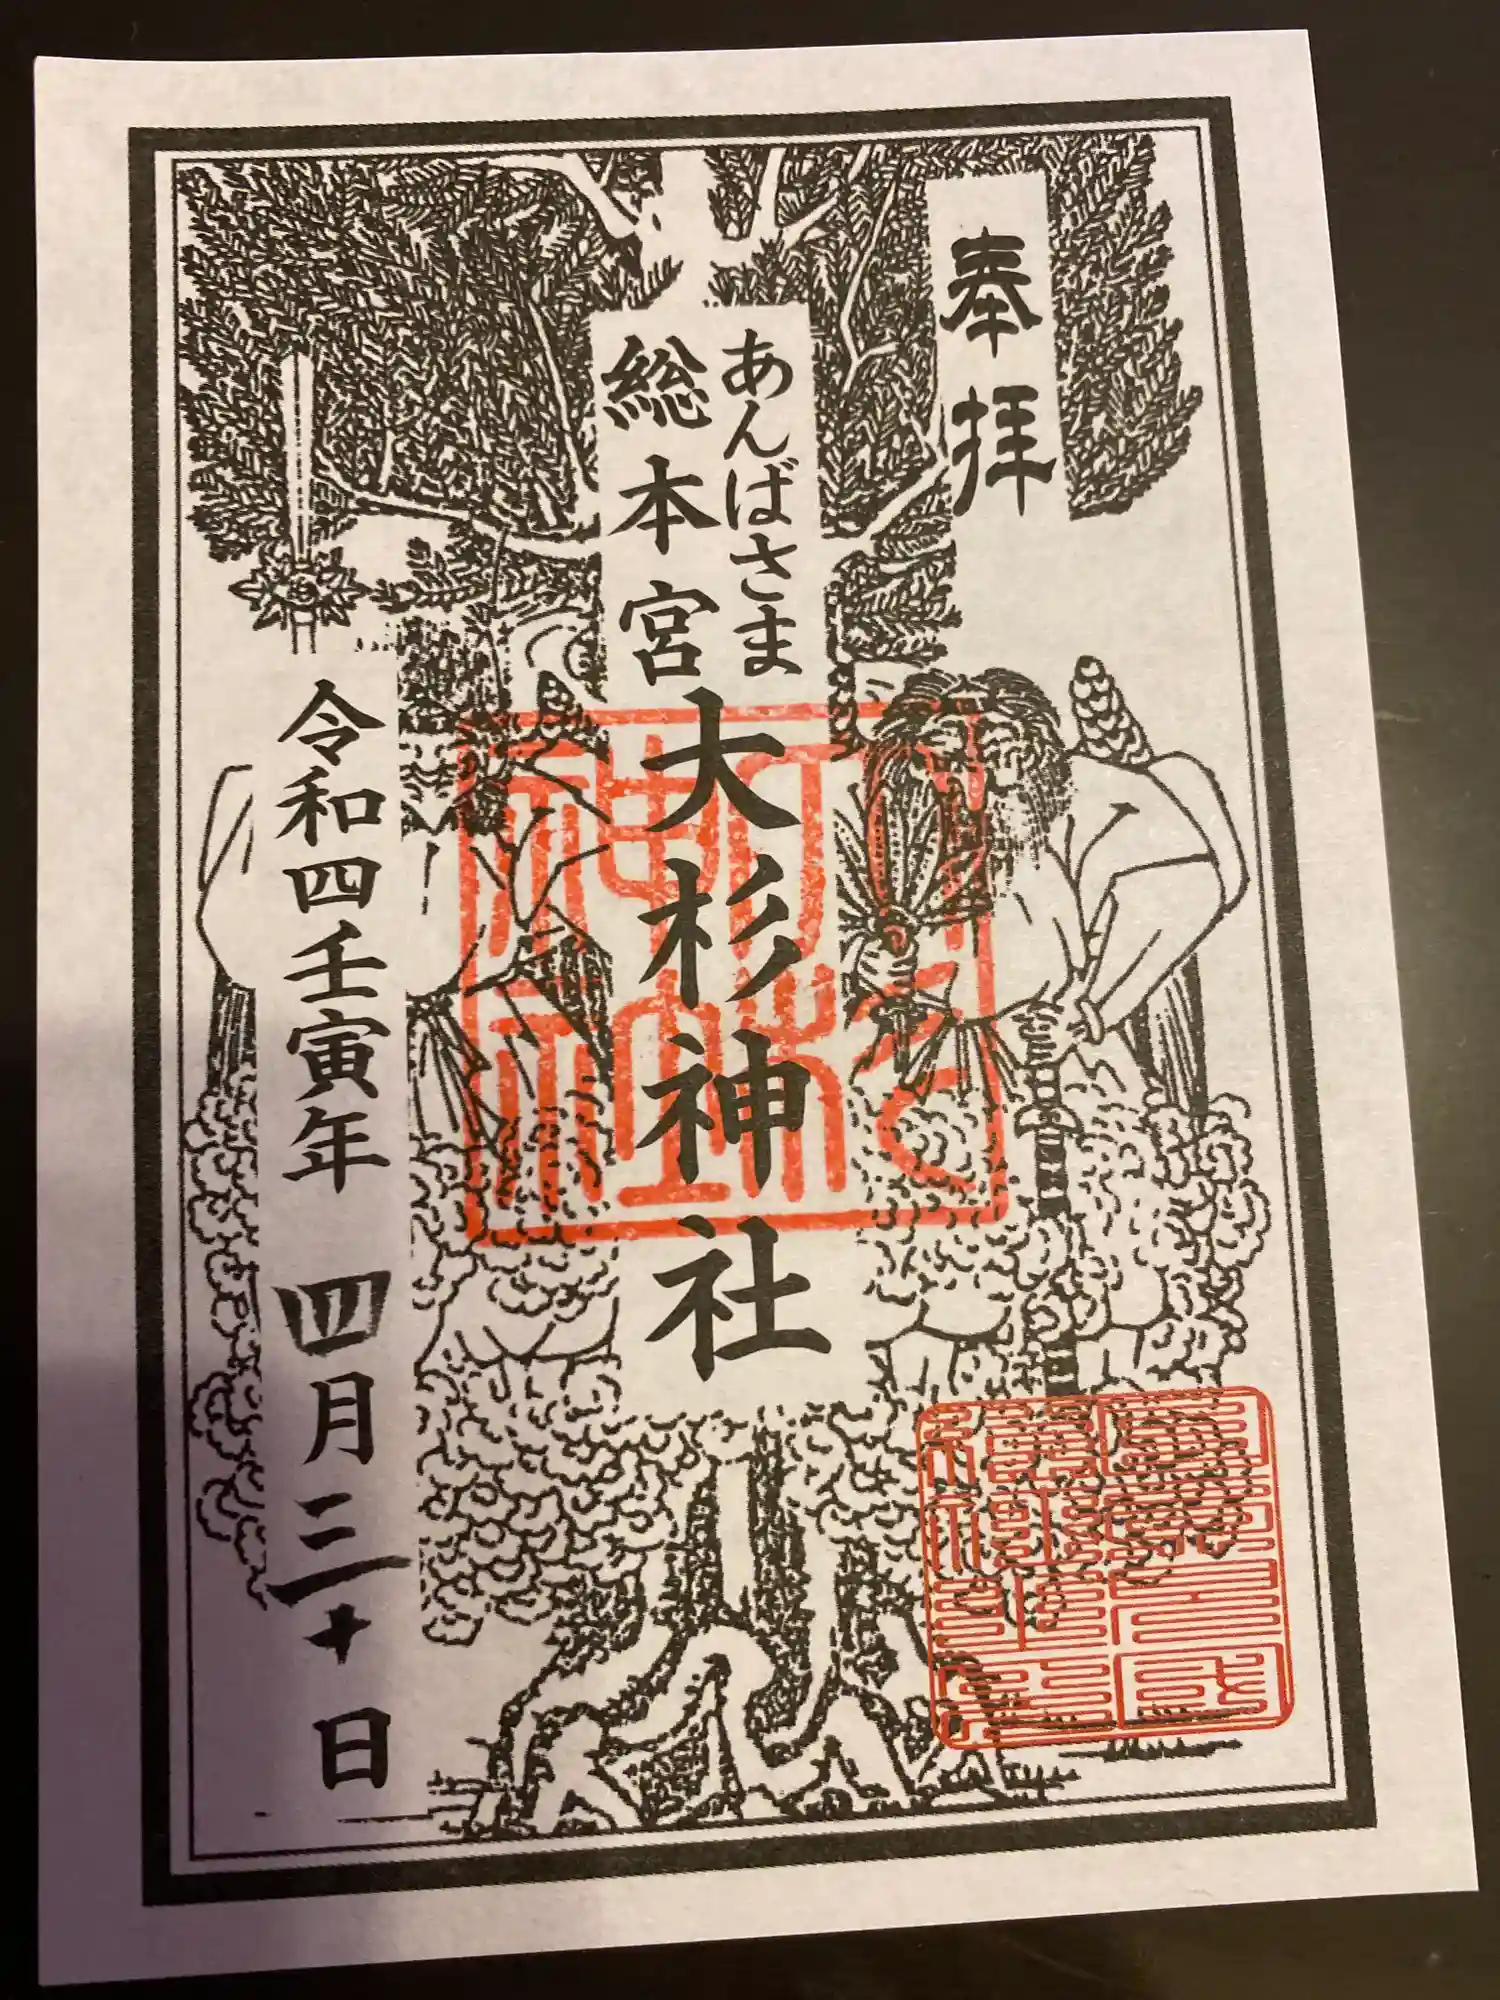 奉拝
あんばさま
総本宮
大杉神社
令和四壬寅年 四月三十日